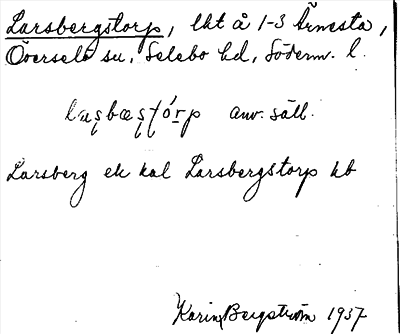 Larsbergstorp, lht å 1-3 Ärnesta,
Överselö sn, Selebo hd, Söderm. l.
anv. säll.
Larsberg ek kal Larsbergstorp hb
Karin Bergström 1937